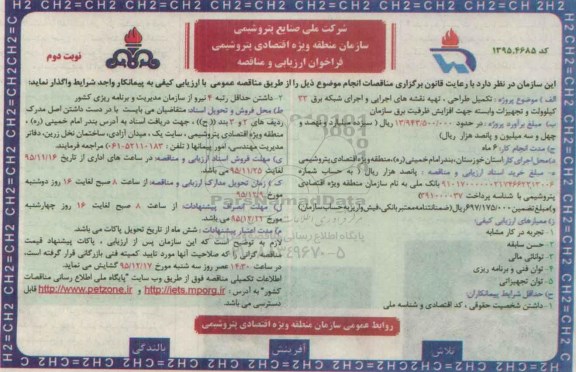 شرکت ملی صنایع پتروشیمی
سازمان منطقه ویژه اقتصادی پتروشیمی
فراخوان ارزیابی و مناقصه
کد ۱۳۹۵.۴۶۸۵
نوبت دوم
این سازمان در نظر دارد با رعایت قانون برگزاری مناقصات انجام موضوع ذیل را از طریق مناقصه عمومی با ارزیابی کیفی به پیمانکار واجد شرایط واگذار نماید:
الف) موضوع پروژه: تکمیل طراحی، تهیه نقشه های اجرایی و اجرای شبکه برق ۳۳
کیلوولت و تجهیزات وابسته جهت افزایش ظرفیت برق سازمان
ب) مبلغ برآورد پروژه: در حدود ۱۳/۹۴۳/۵۰۰/۰۰۰ ریال (سیزده میلیارد و نهصد و
چهل و سه میلیون و پانصد هزار ریال)
ج) مدت انجام کار: ۶ ماه
د) محل اجرای کار: استان خوزستان، بندر امام خمینی (ره)، منطقه ویژه اقتصادی پتروشیمی
ه) مبلغ خرید اسناد ارزیابی و مناقصه: پانصد هزار ریال، به حساب شماره
بانک ملی به نام سازمان منطقه ویژه اقتصادی
پتروشیمی با شناسه پرداخت
و) مبلغ تضمین: ۶۹۷/۱۷۵/۰۰۰ ریال (ضمانتنامه معتبر بانکی، فیش واریز به حساب سازمان)
ز) معیارهای ارزیابی کیفی:
۱- تجربه در کار مشابه
۲- حسن سابقه
۳- توانائی مالی
۴- توان فنی و برنامه ریزی
۵- توان تجهیزاتی
ح) حداقل شرایط پیمانکاران:
۱- داشتن شخصیت حقوقی، کد اقتصادی و شناسه ملی
۲- داشتن حداقل رتبه ۴ نیرو از سازمان مدیریت و برنامه ریزی کشور
ط) محل فروش و تحویل اسناد: متقاضیان می بایست با در دست داشتن اصل مدرک
ردیف های ۲ و ۳ بند (( ح))، جهت دریافت اسناد به آدرس بندر امام خمینی (ره)،
منطقه ویژه اقتصادی پتروشیمی، سایت یک، میدان آزادی، ساختمان نخل زرین، دفاتر
مدیریت مهندسی، امور پیمانها (تلفن: ۰۶۱-۵۲۱۱۰۱۸۳) مراجعه فرمایند
ی) مهلت فروش اسناد ارزیابی و مناقصه: در ساعت های اداری از تاریخ ۹۵/۱۱/۱۶
لغایت ۹۵/۱۱/۲۵ می باشد
ک) زمان تحویل مدارک ارزیابی و مناقصه: از ساعت ۸ صبح لغایت ۱۶ روز دوشنبه
مورخ ۹۵/۱۲/۹
ل) مهلت تحویل پیشنهادات: از ساعت ۸ صبح لغایت ۱۶ روز چهارشنبه
مورخ
م) مدت اعتبار پیشنهادات: شش ماه از تاریخ تحویل پاکات می باشد.
لازم به توضیح است که این سازمان پس از ارزیابی، پاکات پیشنهاد قیمت
مناقصه گرانی را که صلاحیت آنها مورد تایید کمیته فنی بازرگانی قرار گرفته است،
در ساعت ۱۴:۳۰ عصر روز سه شنبه مورخ ۹۵/۱۲/۱۷ گشایش می نماید.
اطلاعات تکمیلی مناقصه فوق از طریق وب سایت "پایگاه ملی اطلاع رسانی مناقصات
کشور" به آدرس: http://iets.mporg.ir و http://www.petzone.ir قابل
دسترسی می باشد.
روابط عمومی سازمان منطقه ویژه اقتصادی پتروشیمی
تلاش
آفرینش
بالندگی